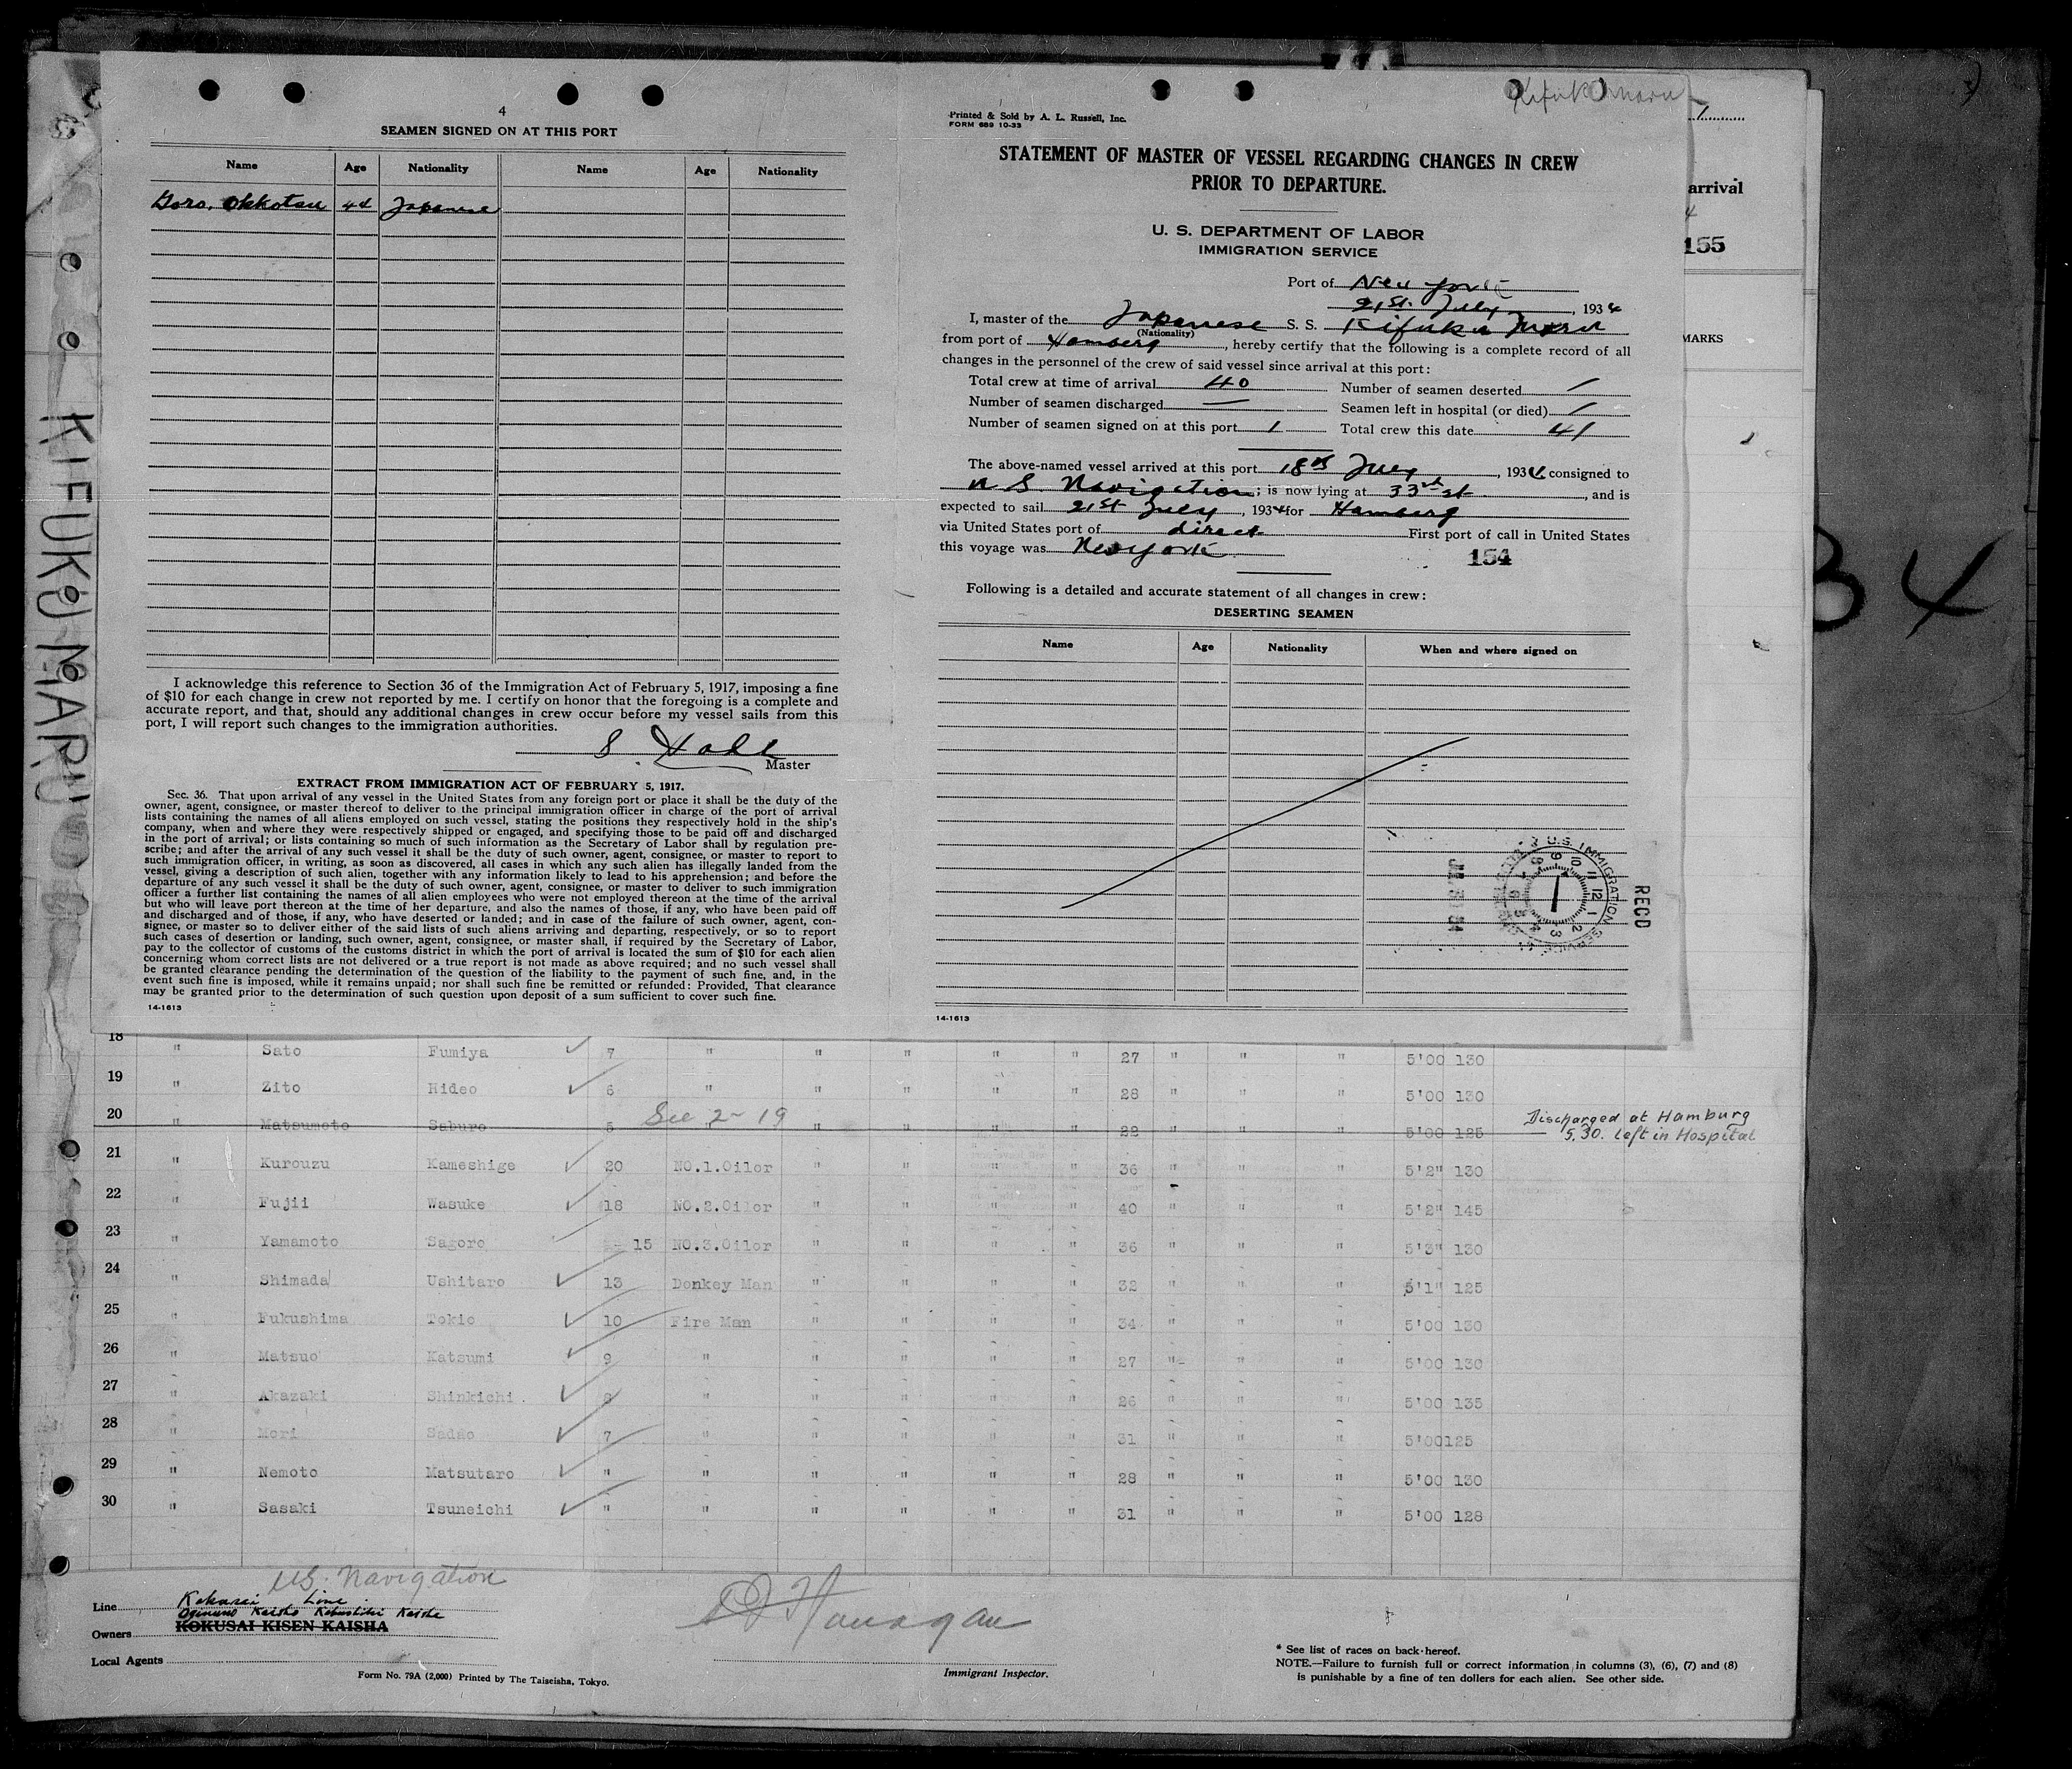 4
SEAMEN SIGNED ON AT THIS PORT
Name Age Nationality Name Age Nationality
Goro. Okkotsu 44 Japanese
I acknowledge this reference to Section 36 of the Immigration Act of February 5, 1917, imposing a fine
of $10 for each change in crew not reported by me. I certify on honor that the foregoing is a complete and
accurate report, and that, should any additional changes in crew occur before my vessel sails from this
port, I will report such changes to the immigration authorities.
Master
EXTRACT FROM IMMIGRATION ACT OF FEBRUARY 5, 1917.
Sec. 36. That upon arrival of any vessel in the United States from any foreign port or place it shall be the duty of the
owner, agent, consignee, or master thereof to deliver to the principal immigration officer in charge of the port of arrival
lists containing the names of all aliens employed on such vessel, stating the positions they respectively hold in the ship's
company, when and where they were respectively shipped or engaged, and specifying those to be paid off and discharged
in the port of arrival; or lists containing so much of such information as the Secretary of Labor shall by regulation pre-
scribe; and after the arrival of any such vessel it shall be the duty of such owner, agent, consignee, or master to report to
such immigration officer, in writing, as soon as discovered, all cases in which any such alien has illegally landed from the
vessel, giving a description of such alien, together with any information likely to lead to his apprehension; and before the
departure of any such vessel it shall be the duty of such owner, agent, consignee, or master to deliver to such immigration
officer a further list containing the names of all alien employees who were not employed thereon at the time of the arrival
but who will leave port thereon at the time of her departure, and also the names of those, if any, who have been paid off
and discharged and of those, if any, who have deserted or landed; and in case of the failure of such owner, agent, con-
signee, or master so to deliver either of the said lists of such aliens arriving and departing, respectively, or so to report
such cases of desertion or landing, such owner, agent, consignee, or master shall, if required by the Secretary of Labor,
pay to the collector of customs of the customs district in which the port of arrival is located the sum of $10 for each alien
concerning whom correct lists are not delivered or a true report is not made as above required; and no such vessel shall
be granted clearance pending the determination of the question of the liability to the payment of such fine, and, in the
event such fine is imposed, while it remains unpaid; nor shall such fine be remitted or refunded: Provided, That clearance
may be granted prior to the determination of such question upon deposit of a sum sufficient to cover such fine.
14-1613
KIFUKU MARU
Kifuku Maru
Printed & Sold by A. L. Russell, Inc.
FORM 689 10-33
STATEMENT OF MASTER OF VESSEL REGARDING CHANGES IN CREW
PRIOR TO DEPARTURE.
U. S. DEPARTMENT OF LABOR
IMMIGRATION SERVICE
Port of New York
21st July, 1934
I, master of the Japanese S. S. Kifuku Maru
(Nationality)
from port of Hamberg, hereby certify that the following is a complete record of all
changes in the personnel of the crew of said vessel since arrival at this port:
Total crew at time of arrival 40 Number of seamen deserted /
Number of seamen discharged — Seamen left in hospital (or died) /
Number of seamen signed on at this port 1 Total crew this date 41
The above-named vessel arrived at this port 18th July, 1934 consigned to
U. S. Navigation; is now lying at 33rd st, and is
expected to sail 21st July, 1934 for Hamberg
via United States port of direct First port of call in United States
this voyage was New York
154
Following is a detailed and accurate statement of all changes in crew:
DESERTING SEAMEN
Name Age Nationality When and where signed on
U.S. IMMIGRATION SERVICE
RECD
14-1613
arrival
155
MARKS
34
18 " Sato Fumiya 7 " " " " " 27 " " " 5'00 130
19 " Zito Hideo 6 " " " " " 28 " " " 5'00 130
20 Matsumoto Saburo 5 See 2-19 " " " " 22 " " " 5'00 125 Discharged at Hamburg
5.30. left in Hospital
21 " Kurouzu Kameshige 20 NO.1.Oilor " " " " 36 " " " 5'2" 130
22 " Fujii Wasuke 18 NO.2.Oilor " " " " 40 " " " 5'2" 145
23 " Yamamoto Sagoro 15 NO.3.Oilor " " " " 36 " " " 5'3" 130
24 " Shimada Ushitaro 13 Donkey Man " " " " 32 " " " 5'1" 125
25 " Fukushima Tokio 10 Fire Man " " " " 34 " " " 5'00 130
26 " Matsuo Katsumi 9 " " " " " 27 " " " 5'00 130
27 " Akazaki Shinkichi 8 " " " " " 26 " " " 5'00 135
28 " Mori Sadao 7 " " " " " 31 " " " 5'00 125
29 " Nemoto Matsutaro " " " " " " 28 " " " 5'00 130
30 " Sasaki Tsuneichi " " " " " " 31 " " " 5'00 128
U.S. Navigation
Line Kokusai Line
Kaisha
Owners KOKUSAI KISEN KAISHA
Local Agents
Form No. 79A (2,000) Printed by The Taiseisha, Tokyo.
Immigrant Inspector.
* See list of races on back hereof.
NOTE.—Failure to furnish full or correct information in columns (3), (6), (7) and (8)
is punishable by a fine of ten dollars for each alien. See other side.